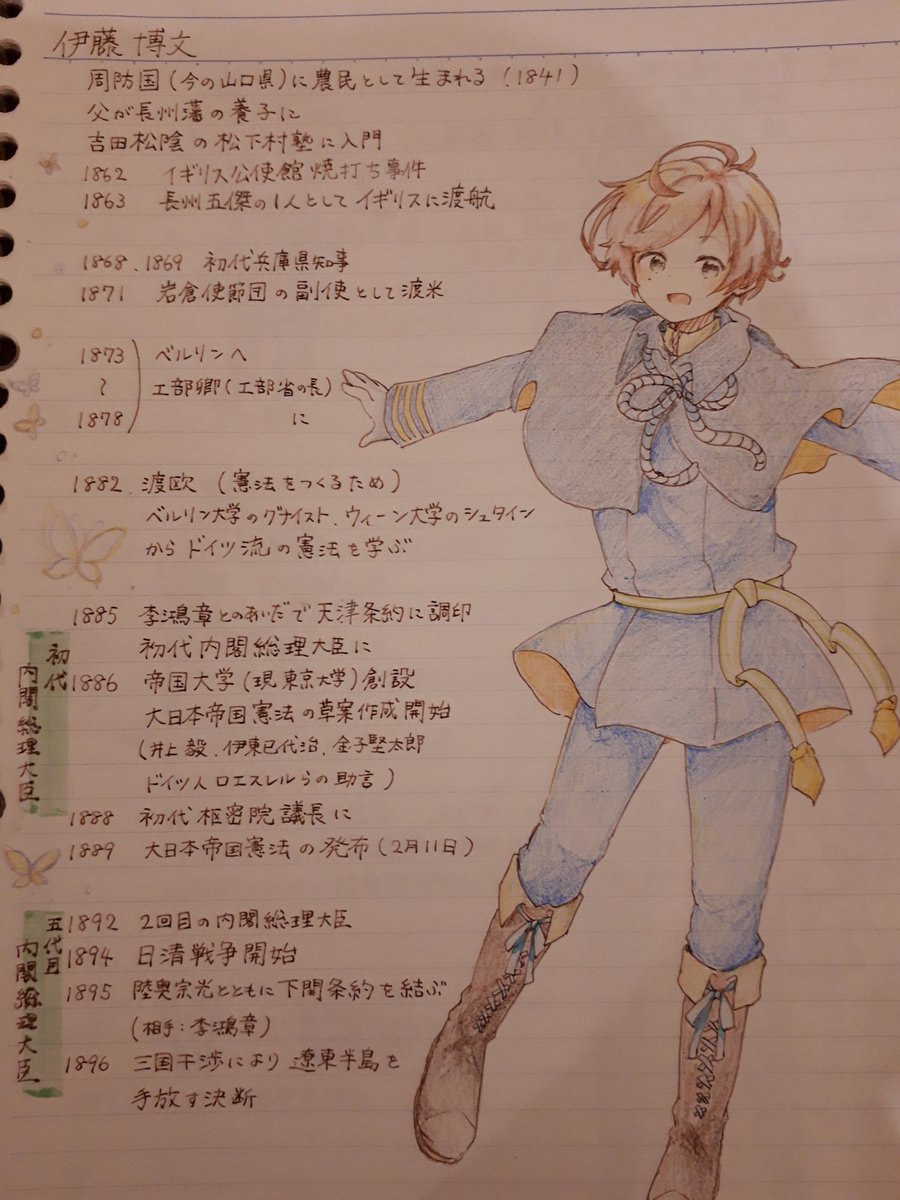 伊藤 博文
周防国(今の山口県)に農民として生まれる (1841)
父が長州藩の養子に
吉田松陰の松下村塾に入門
1862 イギリス公使館焼打ち事件
1863 長州五傑の1人としてイギリスに渡航
1868、1869 初代兵庫県知事
1871 岩倉使節団の副使として渡米
1873 ベルリンへ
~ 工部卿(工部省の長)
1878 に
1882 渡欧 (憲法をつくるため)
ベルリン大学のグナイスト、ウィーン大学のシュタイン
からドイツ流の憲法を学ぶ
1885 李鴻章とのあいだで天津条約に調印
初代内閣総理大臣に
初代
内閣総理大臣
1886 帝国大学(現東京大学)創設
大日本帝国憲法の草案作成開始
(井上毅、伊東巳代治、金子堅太郎
ドイツ人ロエスレルらの助言)
1888 初代枢密院議長に
1889 大日本帝国憲法の発布(2月11日)
五代目
内閣総理大臣
1892 2回目の内閣総理大臣
1894 日清戦争開始
1895 陸奥宗光とともに下関条約を結ぶ
(相手:李鴻章)
1896 三国干渉により遼東半島を
手放す決断